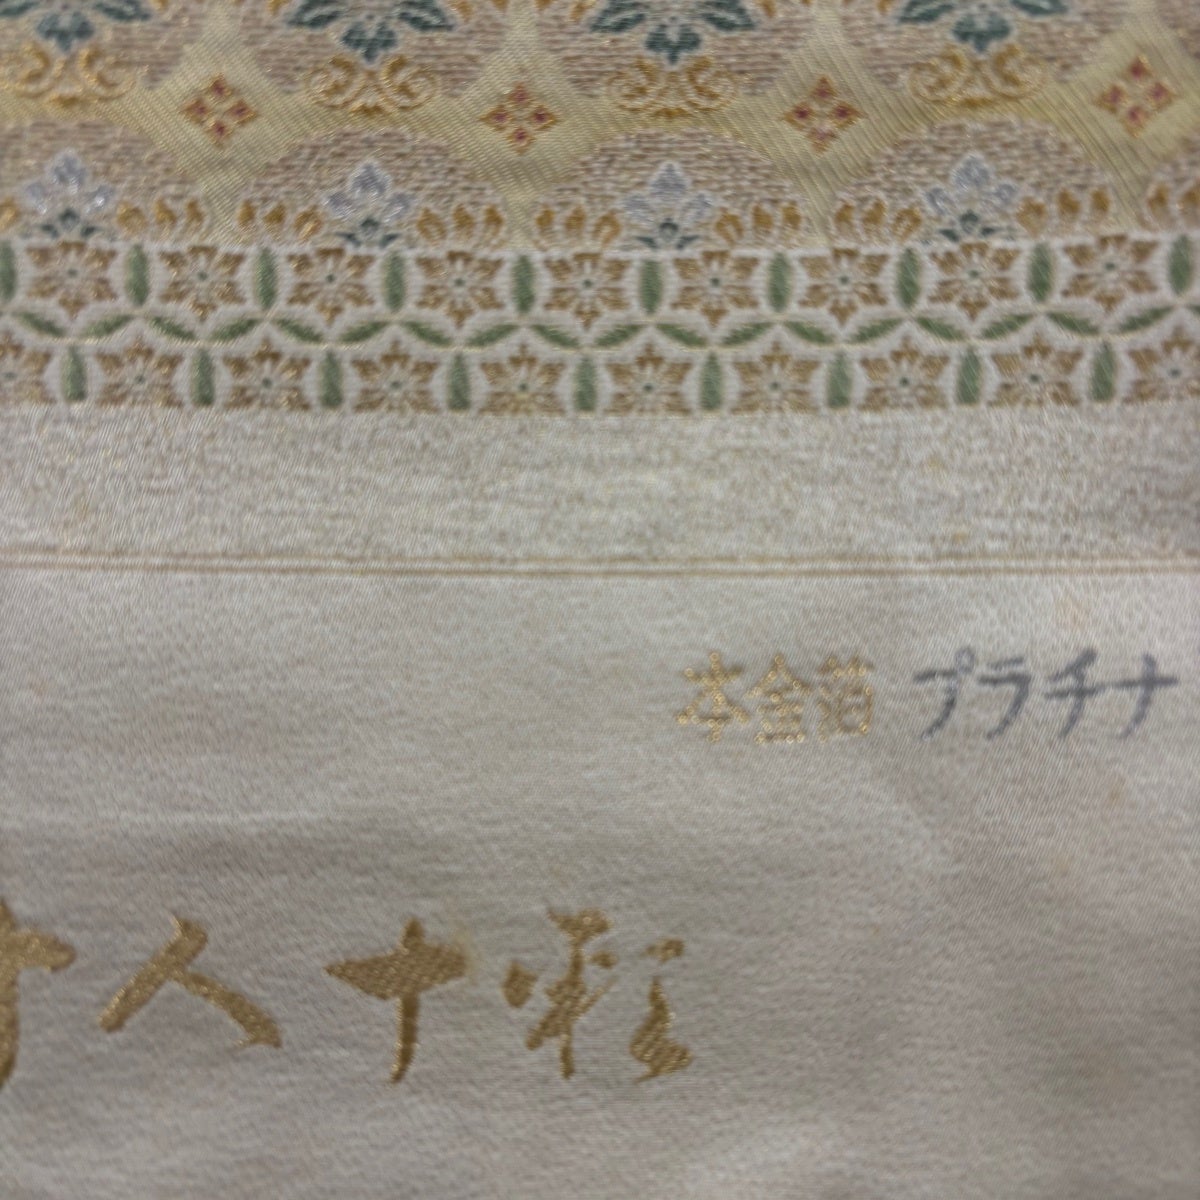 本金箔 プラチナ
十人十彩